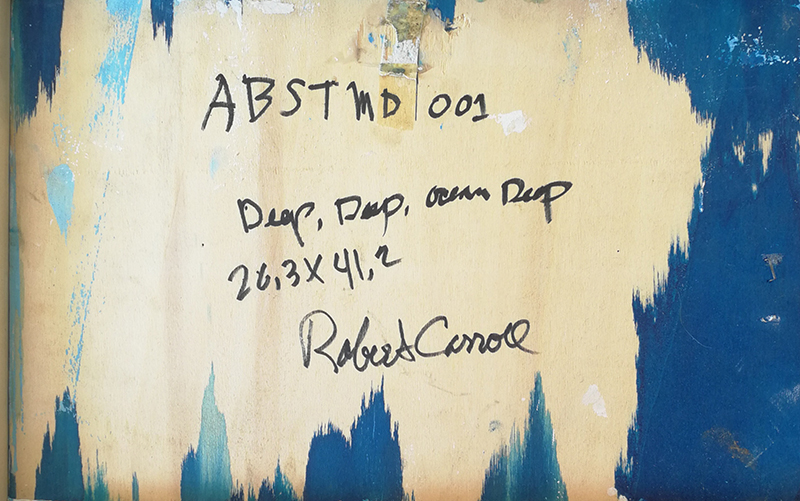 ABSTMD 001
Deep, Deep, ocean Deep
26,3 X 41,2
Robert Carroll